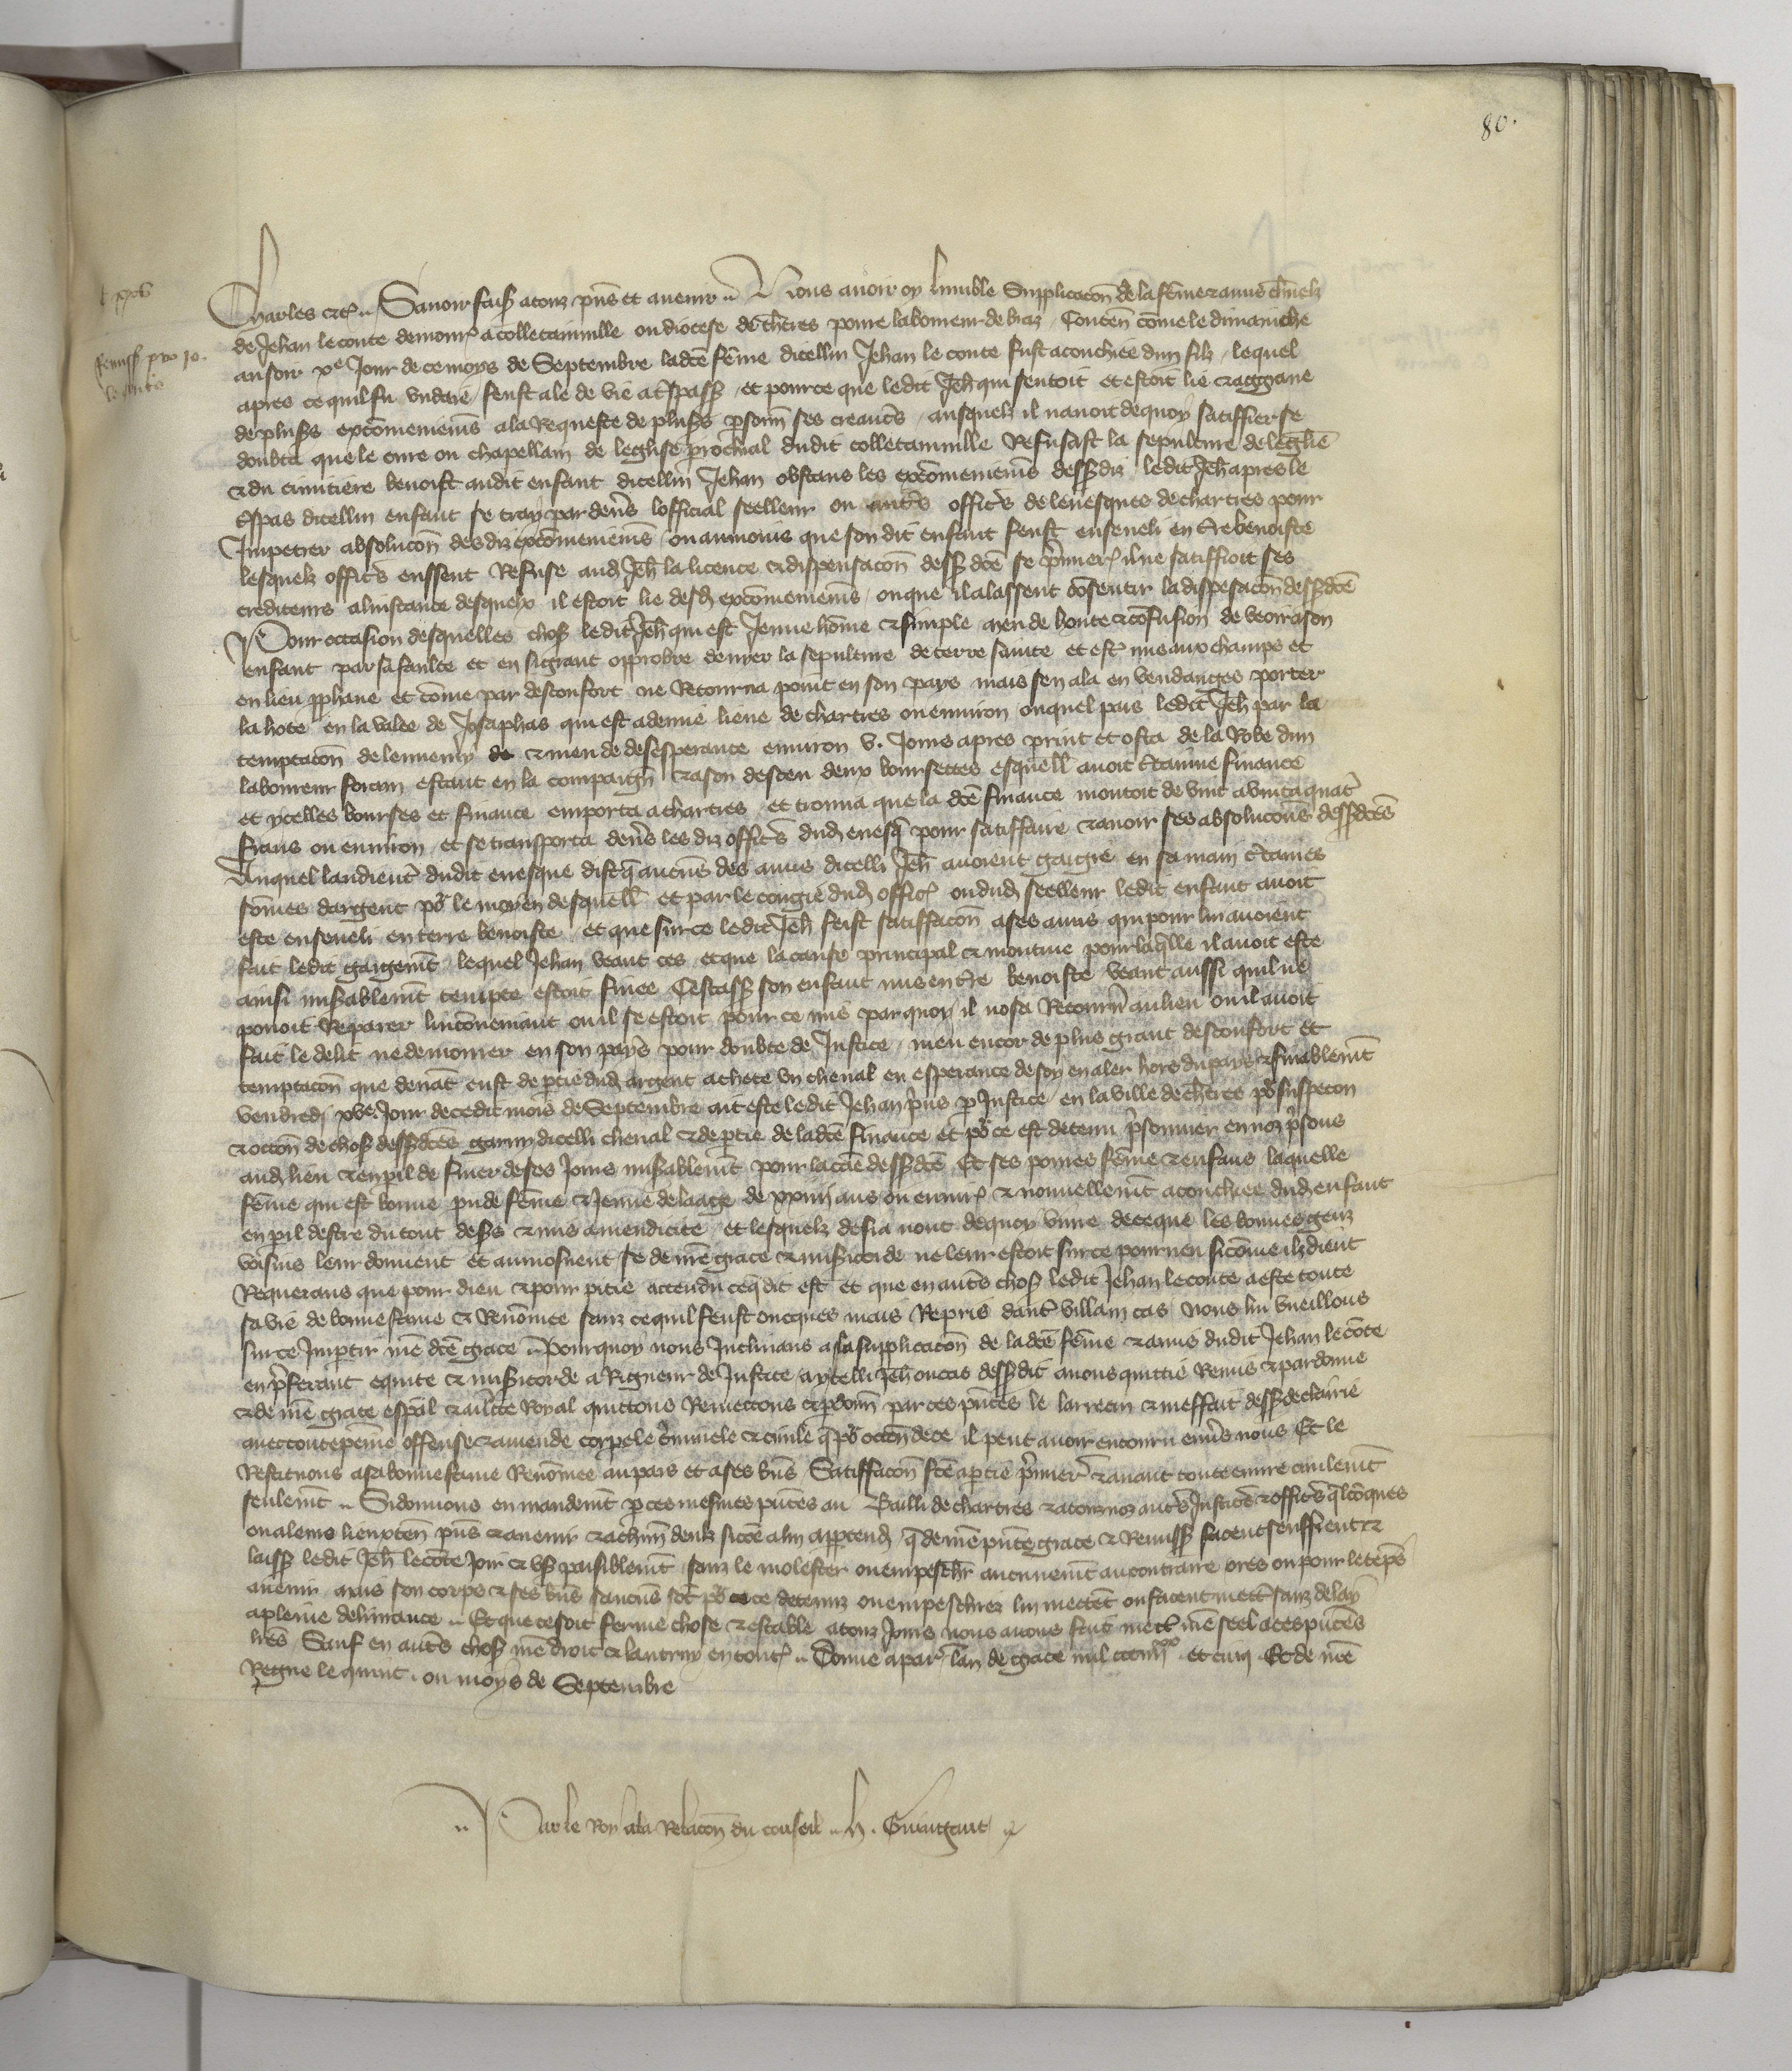 80.
Remiss pro Jo.
le conte
Charles etc. Savoir faisons a touz pñs et avenir Nous avoir oy lumble Supplicacõn de la fẽme & amis charnelz
de Jehan le conte demourᵗ a Colletainville ou diocese de Chartres povre laboureur de braz Contenãt cõme le dimanche
au soir xᵉ Jour de ce moys de Septembre ladcẽ fẽme dicellui Jehan le conte fust acouchiee dun filz lequel
apres ce quil fu undoie feust ale de vie a trespass et pour ce que ledit Jehñ qui sentoit et estoit lie & aggrave
de plusrs excõmeniemẽs a la Requeste de plusrs persoñ ses creancrs ausquelz il navoit de quoy satiffier se
doubta que le cure ou chapellain de leglise parochial dudit Colletainville Refusast la sepulture de leglise
& du cimitiere benoist audit enfant dicellui Jehan obstans les excõmeniemẽs dessusdiz ledit Jehñ apres le
trespas dicellui enfant se tray par devers lofficial seelleur ou autrs officrs de levesques de chartres pour
Impetrer absolucõn desdiz excõmeniemẽs ou aumoins que son dit enfant feust enseveli en terre benoiste
lesquelz officrs eussent Refuse aud Jehñ la licence & dispensacõn dessusdcẽ se premierᵗ il ne satiffioit ses
crediteurs a linstance desquelx il estoit lie desd excõmeniemẽs ou que il alassent cõsentir la dispẽsacõn dessusdcẽ
Pour occasion desquelles choses ledit Jehñ qui est Jeune hõme & simple meu de honte & cõfusion de veoir a son
enfant par sa faulte et en si grant opprobre denier la sepulture de terre sainte et estre mis aux champs et
en lieu prophane et cõme par desconfort ne Retourna point en son pays mais sen ala en vendanges porter
la hote en la valee de Josaphas qui est a demie lieue de chartres ou environ ouquel pais ledit Jehñ par la
temptacõn de lennemy & meu de desesperance environ v. Jours apres print et osta de la Robe dun
laboureur forain estant en la compaigñ & a son desceu deux boursettes esquelles avoit certaine finance
et ycelles bourses et finance emporta a chartres et trouva que la dcẽ finance montoit de vint a vint a quatre
frans ou environ et se transporta devers les diz officrs dud evesq pour satiffaire & avoir ses absolucõns dessusdctẽs
Auquel laudiencr dudit evesque dist q aucuns des amis dicelli Jehñ avoient gaigie en sa main certaines
sõmes dargent pour le moyen desquelles et par le congie dud officᵗ ou dud seelleur ledit enfant avoit
este enseveli en terre benoiste et que sur ce ledit Jehñ feist satiffacõn a ses amis qui pour lui avoient
fait ledit gaigemẽt lequel Jehan veant ces et que la cause principal & motive pour laquelle il avoit este
ainsi miserablemẽt tempte estoit finee Cestassavoir son enfant mis en terre benoiste veant aussi quil ne
povoit Reparer linconveniant ou il se estoit pour ce mis par quoy il nosa Retournr au lieu ou il avoit
fait le delit ne demourer en son pays pour doubte de Justice meu encor de plus grant desconfort et
temptacõn que devãt eust de partie dud argent achete un cheval en esperance de soy en aler hors du pays & finablemẽt
vendredj xvᵉ Jour de cedit mois de Septembre ait este ledit Jehan prins par Justice en la ville de chartres pour suspecon
& occõn de choses dessusdctẽs garny dicelli cheval & de partie de ladcẽ finance et pour ce est detenu prisonnier en noz prisons
aud lieu & en peril de finer de ses Jours miserablemẽt pour lacciẽ dessusdcẽ Et ses povres fẽme & enfans laquelle
fẽme qui est bonne preude fẽme & Jeune de laage de xxiiij ans ou environ & nouvellemẽt acouchiee dud enfant
en peril destre du tout desers & mis a mendicite et lesquelz desia nont de quoy vivre de ce que les bonnes genz
voisins leur donnent et aumosnent se de nrẽ grace & misericorde ne leur estoit sur ce pourveu sicõme ilz dient
Requerans que pour dieu & pour pitie attendu ce q dit est et que en autrs choses ledit Jehan le conte a este toute
sa vie de bonne fame & Renõmee sanz ce quil feust oncques mais Repris dautr villain cas Nous lui vueillons
sur ce Impartir nrẽ dcẽ grace Pourquoy nous Inclinans a la supplicacõn de ladcẽ fẽme & amis dudit Jehan le cõte
en preferant equite & misericorde a Rigueur de Justice a ycelli Jehñ ou cas dessusdit avons quittie Remis & pardonne
& de nrẽ grace especial & auctorite Royal quittons Remettons & pardonñ par ces pñtes le larrecin & meffait dessus declairie
avec toute peine offense & amende corpele criminele & civile q pour occõn de ce il peut avoir encouru envers nous Et le
Restituons a sa bonne fame Renõmee au pais et a ses biẽs Satiffacõn fcẽ a partie premierᵗ & avant toute euvre civilemẽt
seulemẽt Si donnons en mandemẽt par ces mesmes pñtes au Bailli de chartres & a touz noz autrs Justicrs & officrs qlcõques
ou a leurs lieuxtenans pñs & avenir & a chũn deulz si cõe a lui appartendra q de nrẽ pñte grace & Remission facent seuffrent &
laissent ledit Jehñ le cõte Joir & user paisiblemẽt sanz le molester ou empeschier aucunemẽt au contraire ores ou pour le tẽps
avenir mais son corps & ses biẽs saucũs sõt pour ce detenuz ou empeschiez lui mettẽt ou facent mettr sanz delay
a pleine delivrance Et que ce soit ferme chose & estable a touz Jours nous avons fait mettre nrẽ seel a ces pñtes
lrẽs Sauf en autrs choses nrẽ droit & lautruy en toutᵗ Donne a parᵗ lan de grace mil ccciiijˣˣ et cinq Et de nrẽ
Regne le quint ou moys de Septembre
Par le Roy a la Relacõn du conseil H. Guingant